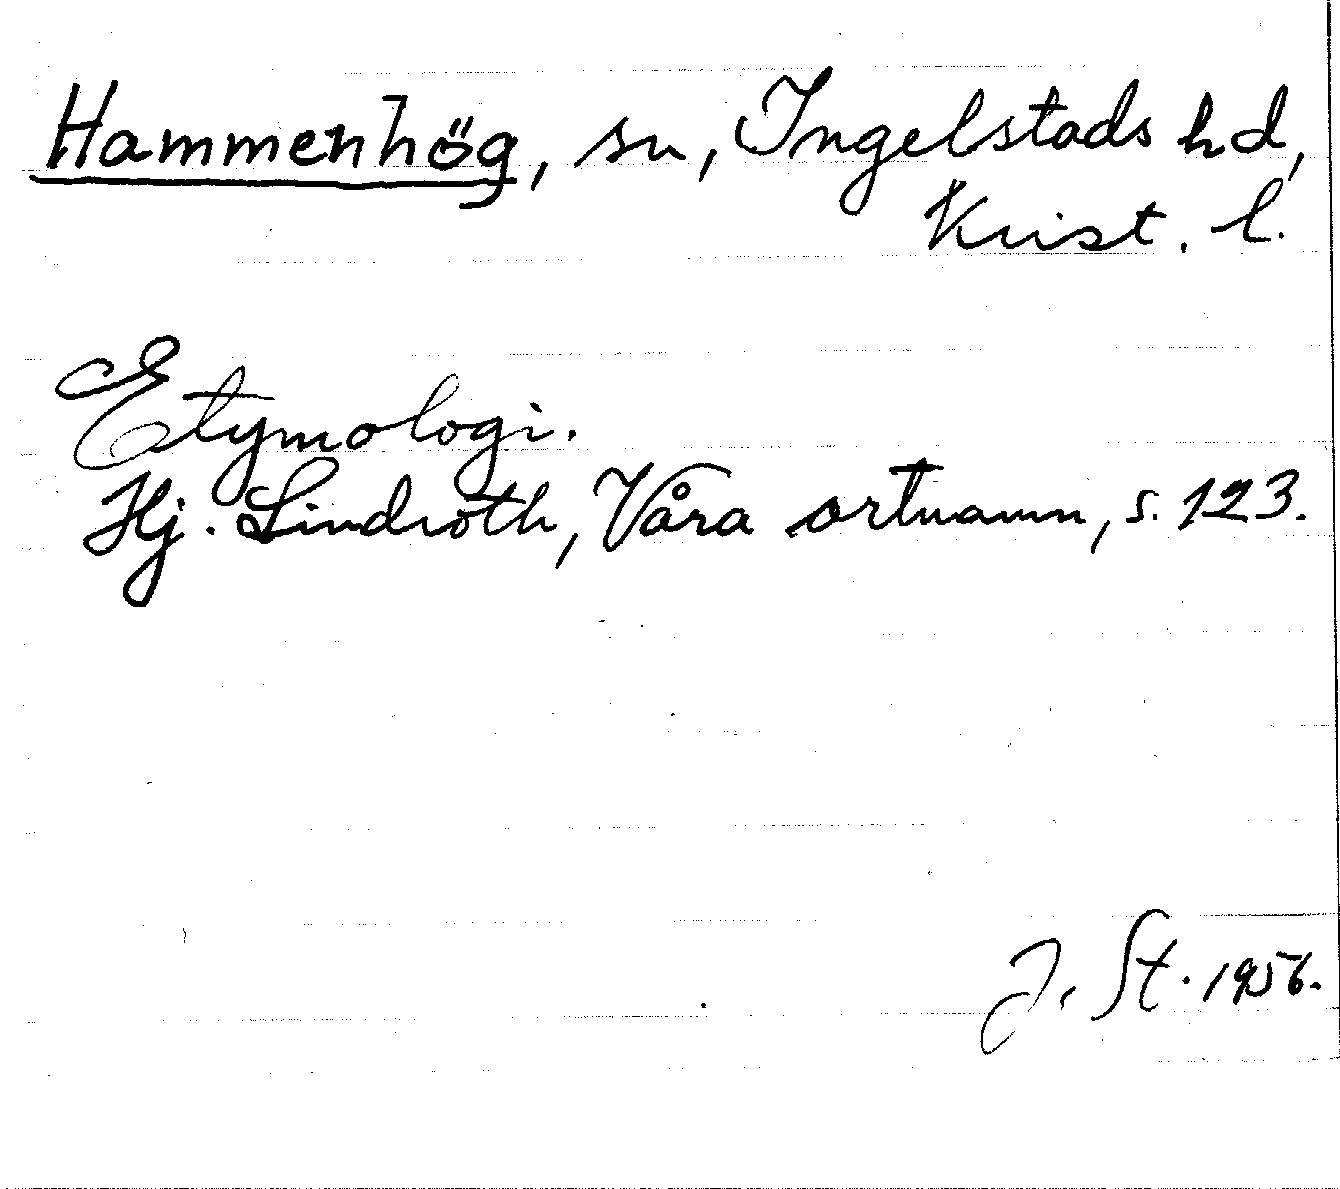 Hammenhög, sn, Ingelstads hd,
Krist. l.
Etymologi.
Hj. Lindroth, Våra ortnamn, s. 123.
J. St. 1956.